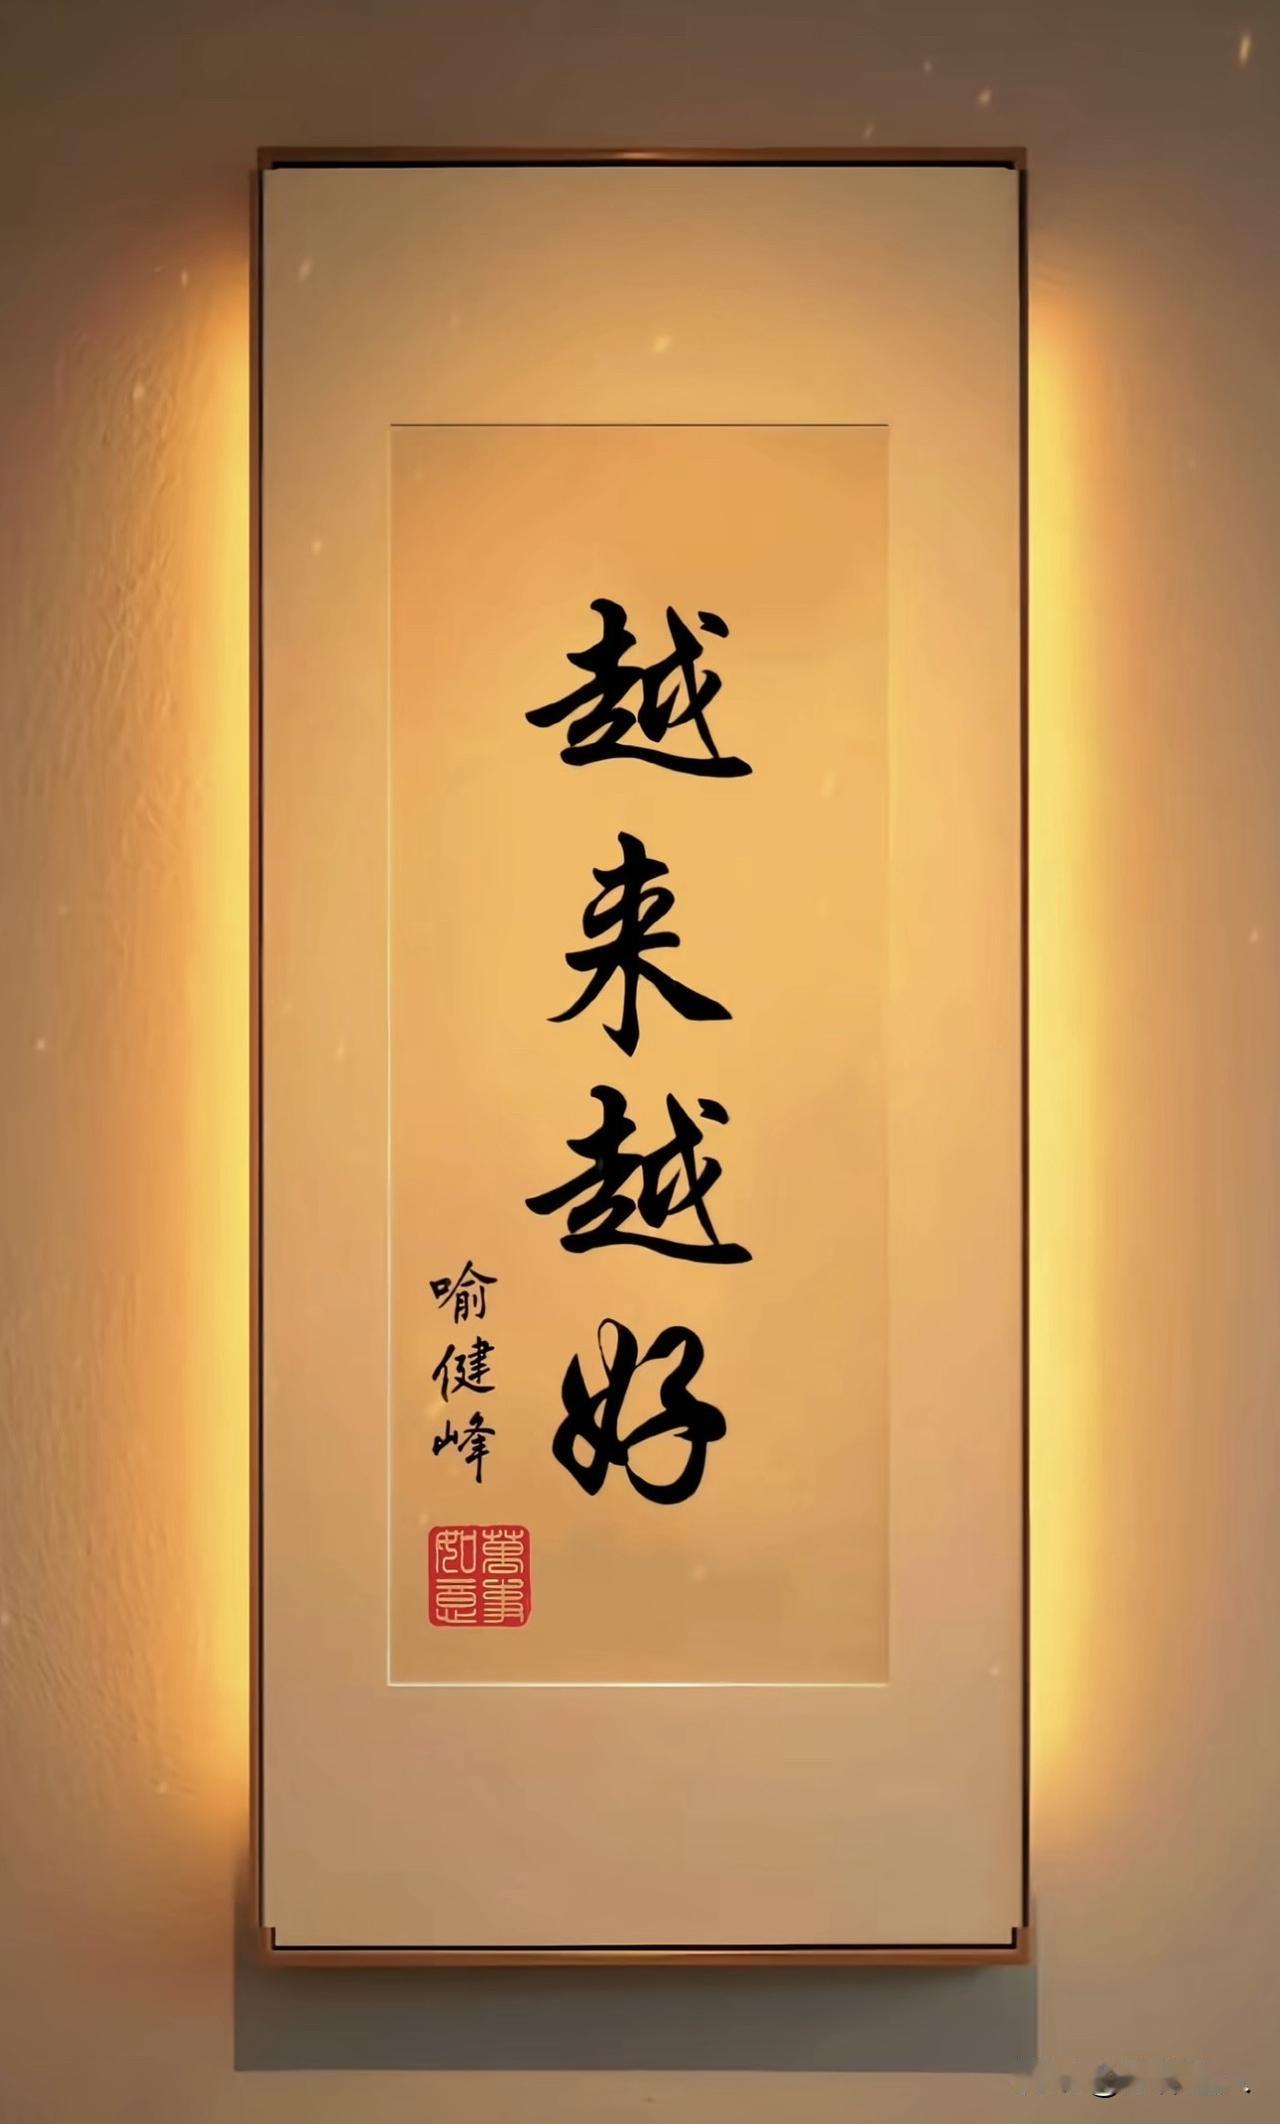 越来越好
喻健峰
萬事如意